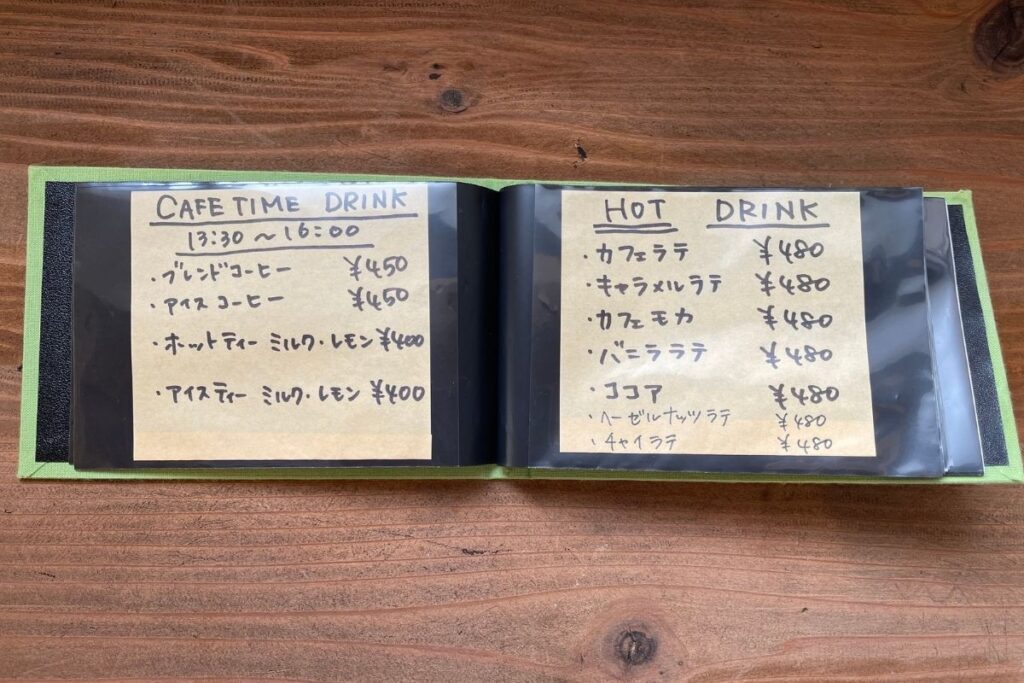 CAFE TIME DRINK
13:30 ～ 16:00
・ブレンドコーヒー ¥450
・アイスコーヒー ¥450
・ホットティー ミルク・レモン ¥400
・アイスティー ミルク・レモン ¥400
HOT DRINK
・カフェラテ ¥480
・キャラメルラテ ¥480
・カフェモカ ¥480
・バニララテ ¥480
・ココア ¥480
・ヘーゼルナッツラテ ¥480
・チャイラテ ¥480